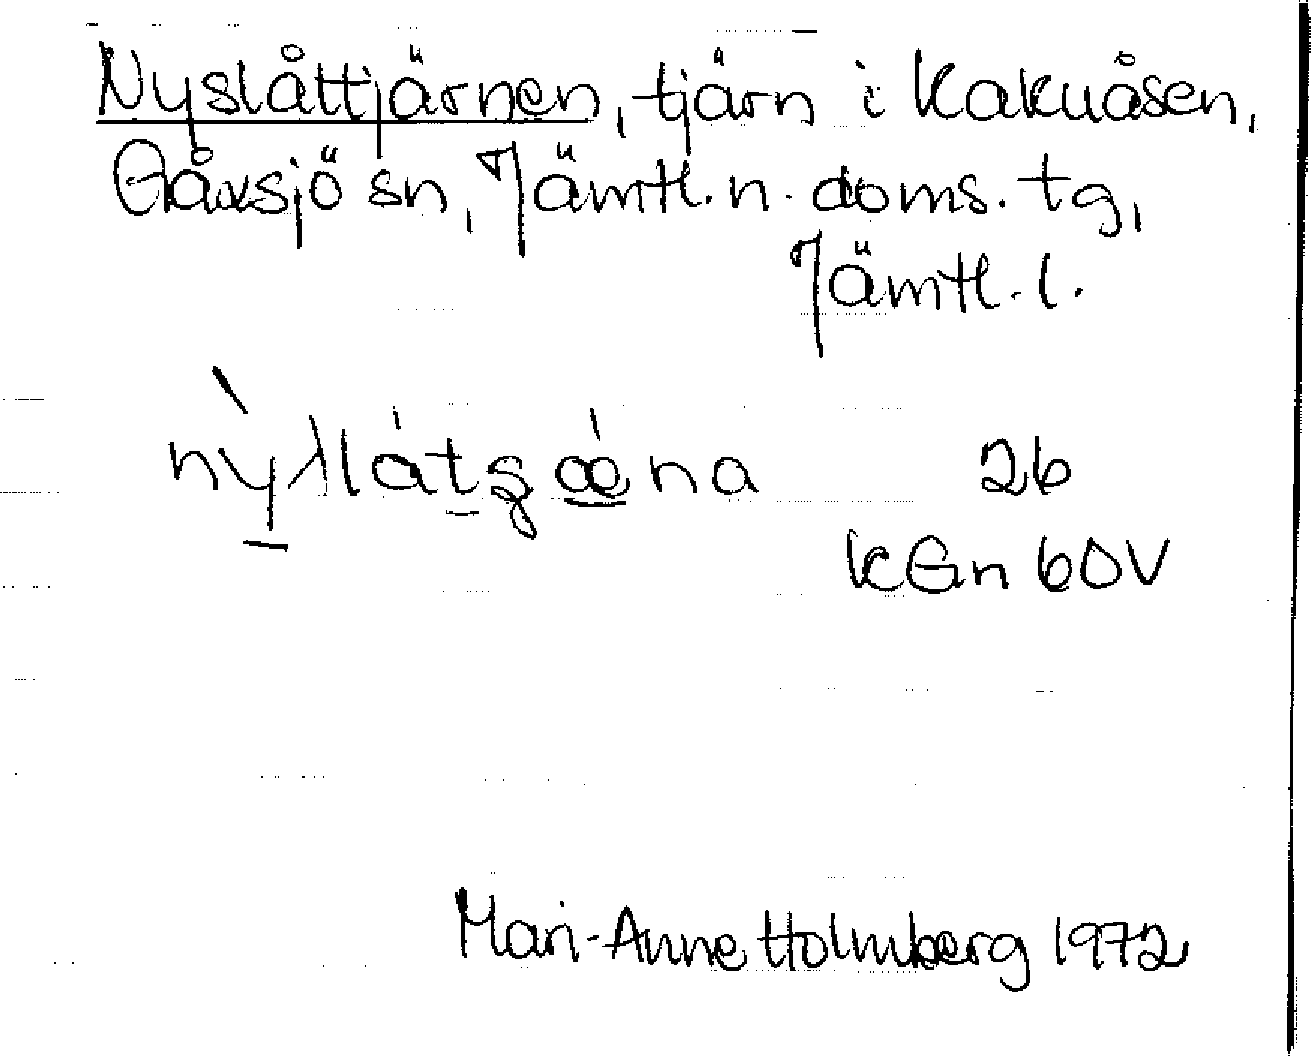 Nyslåttjärnen, tjärn i Kakuåsen,
Gåxsjö sn, Jämtl. n. doms. tg,
Jämtl. l.
26
KGn 60V
Mari-Anne Holmberg 1972